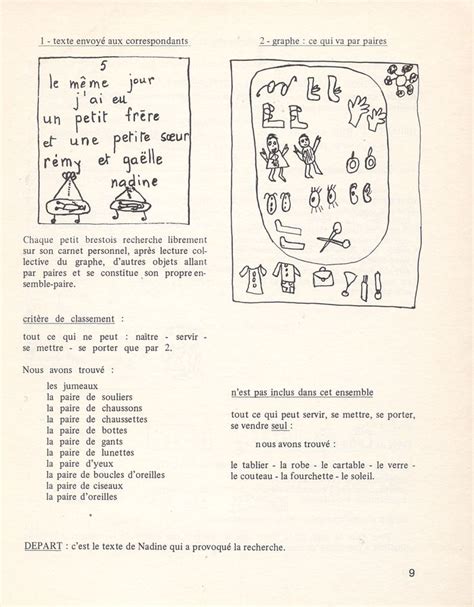 1 - texte envoyé aux correspondants
2 - graphe : ce qui va par paires
5
le même jour
j'ai eu
un petit frère
et une petite sœur
rémy et gaëlle
nadine
Chaque petit brestois recherche librement
sur son carnet personnel, après lecture col-
lective du graphe, d'autres objets allant
par paires et se constitue son propre en-
semble-paire.
critère de classement :
tout ce qui ne peut : naître - servir -
se mettre - se porter que par 2.
Nous avons trouvé :
les jumeaux
la paire de souliers
la paire de chaussons
la paire de chaussettes
la paire de bottes
la paire de gants
la paire de lunettes
la paire d'yeux
la paire de boucles d'oreilles
la paire de ciseaux
la paire d'oreilles
n'est pas inclus dans cet ensemble
tout ce qui peut servir, se mettre, se porter,
se vendre seul :
nous avons trouvé :
le tablier - la robe - le cartable - le verre -
le couteau - la fourchette - le soleil.
DEPART : c'est le texte de Nadine qui a provoqué la recherche.
9